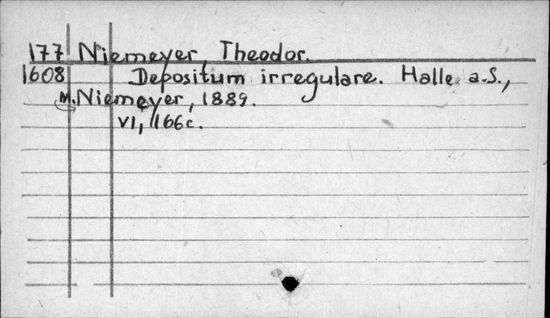 177 Niemeyer, Theodor.
1608 Depositum irregulare. Halle a.S.,
M. Niemeyer, 1889.
VI, 166c.